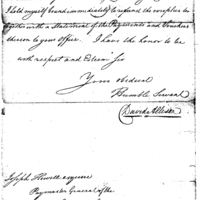 I hold myself bound immediately to refund the surplus to-
gether with a Statement of the Payments and Vouchers
thereon to your office. I have the honor to be
with respect and Esteem Sir
Your obedient
Humble Servant
David Allison
Joseph Howell esquire
Paymaster General of the